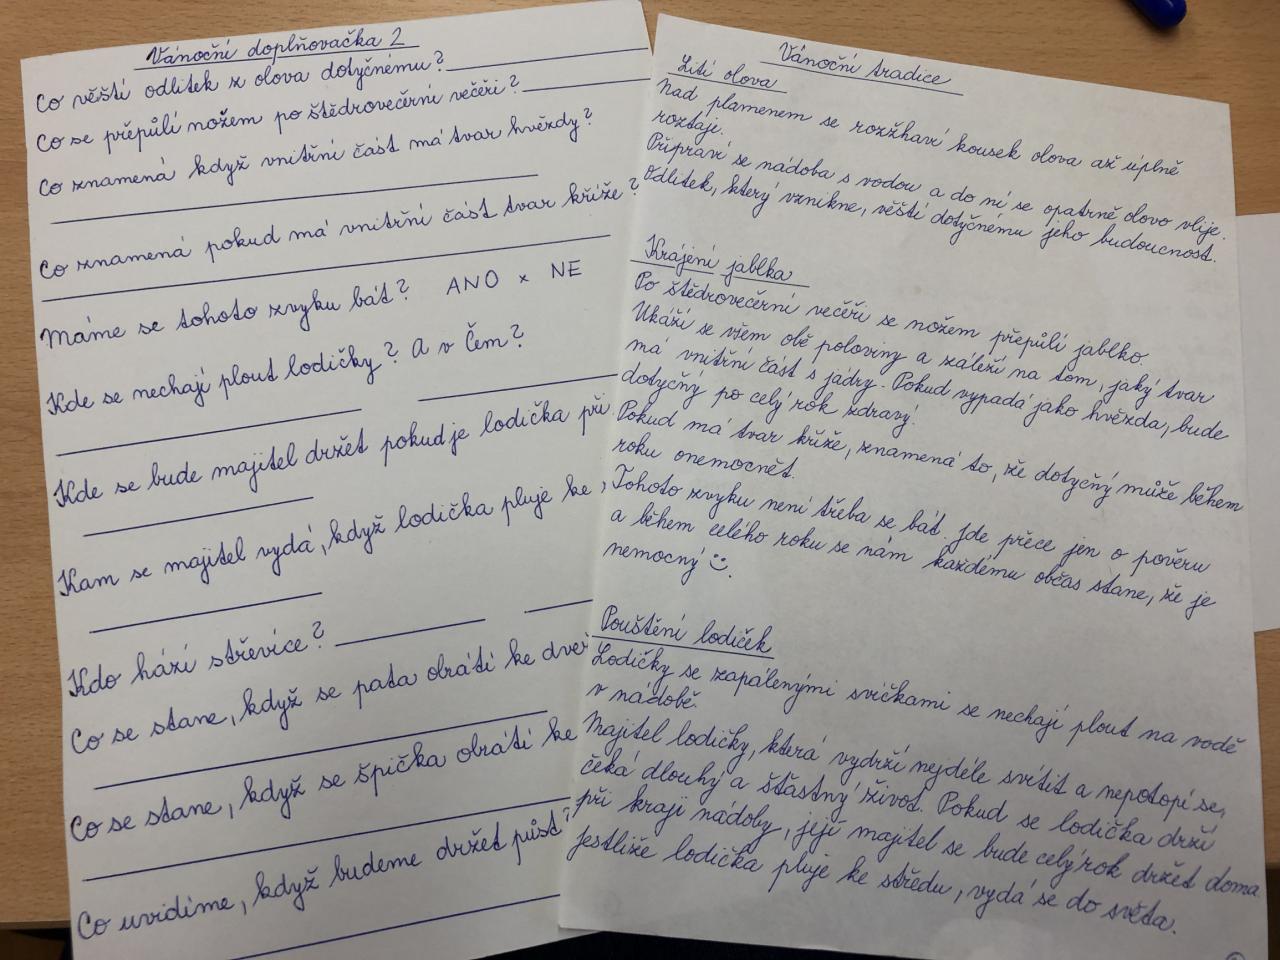 Vánoční doplňovačka 2
Co věští odlitek z olova dotyčnému?
Co se přepůlí nožem po štědrovečerní večeři?
Co znamená když vnitřní část má tvar hvězdy?
Co znamená pokud má vnitřní část tvar kříže?
Máme se tohoto zvyku bát? ANO x NE
Kde se nechají plout lodičky? A v čem?
Kde se bude majitel držet pokud je lodička při
Kam se majitel vydá, když lodička pluje ke
Kdo hází střevíce?
Co se stane, když se pata obrátí ke dveř
Co se stane, když se špička obrátí ke
Co uvidíme, když budeme držet půst?
Vánoční tradice
Lití olova
Nad plamenem se rozžhaví kousek olova až úplně
roztaje.
Připraví se nádoba s vodou a do ní se opatrně olovo vlije.
Odlitek, který vznikne, věští dotyčnému jeho budoucnost.
Krájení jablka
Po štědrovečerní večeři se nožem přepůlí jablko.
Ukáží se všem obě poloviny a záleží na tom, jaký tvar
má vnitřní část s jádry. Pokud vypadá jako hvězda, bude
dotyčný po celý rok zdravý.
Pokud má tvar kříže, znamená to, že dotyčný může během
roku onemocnět.
Tohoto zvyku není třeba se bát. Jde přece jen o pověru
a během celého roku se nám každému občas stane, že je
nemocný ☺.
Pouštění lodiček
Lodičky se zapálenými svíčkami se nechají plout na vodě
v nádobě.
Majitel lodičky, která vydrží nejdéle svítit a nepotopí se,
čeká dlouhý a šťastný život. Pokud se lodička drží
při kraji nádoby, její majitel se bude celý rok držet doma.
Jestliže lodička pluje ke středu, vydá se do světa.